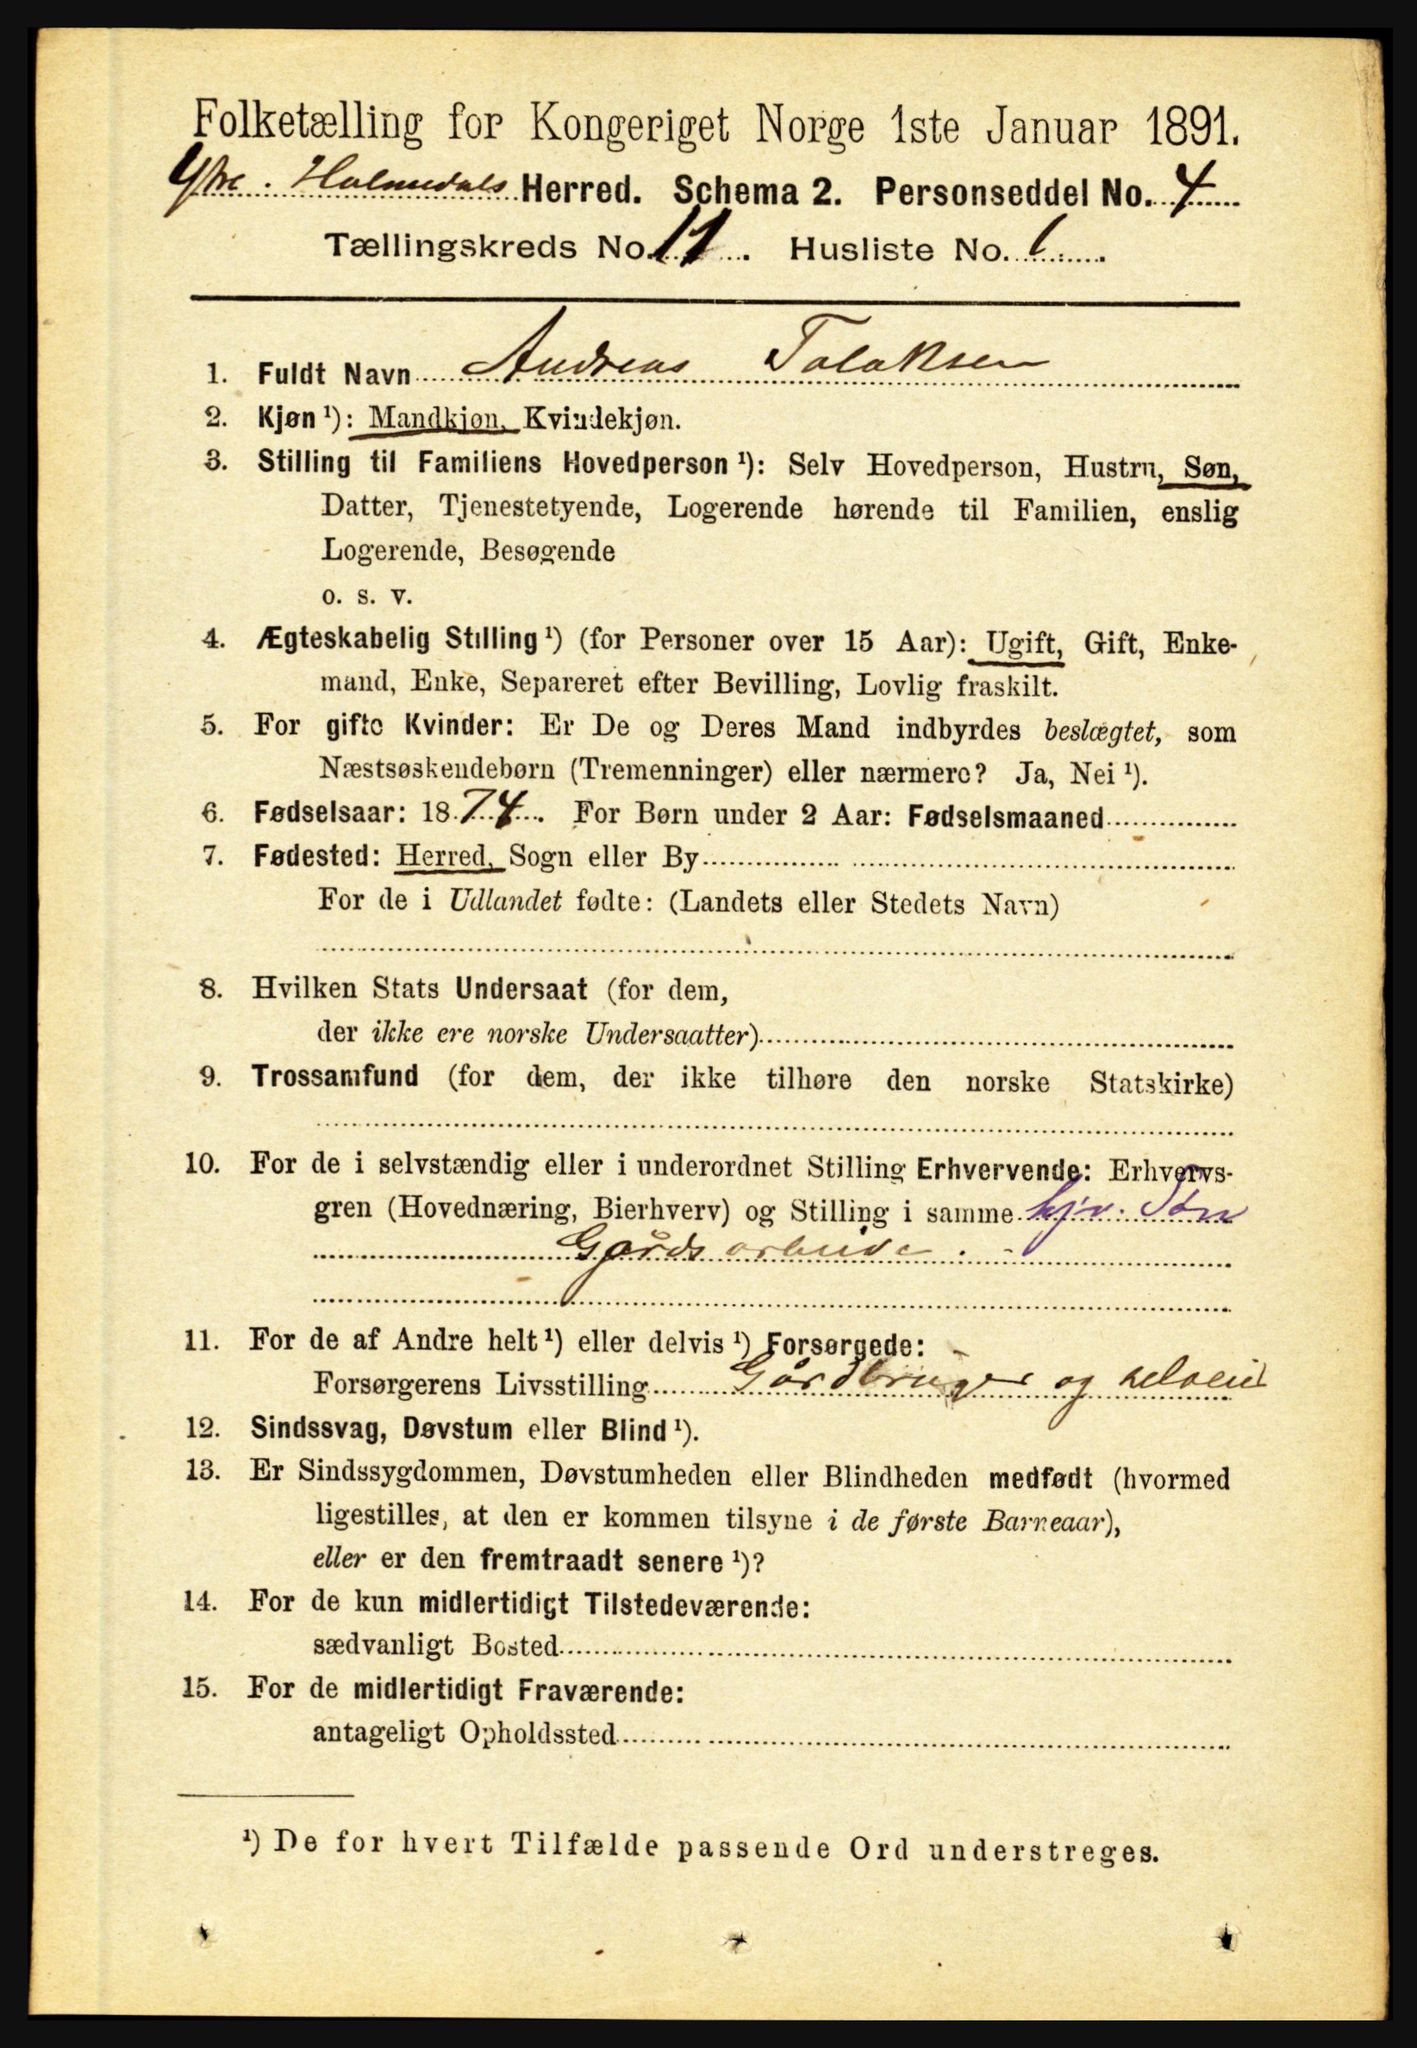 Folketælling for Kongeriget Norge 1ste Januar 1891.
Ytre Holmedals Herred. Schema 2. Personseddel No. 4
Tællingskreds No. 11. Husliste No. 1.
1. Fuldt Navn Andreas Tolaksen
2. Kjøn ¹): Mandkjøn, Kvindekjøn.
3. Stilling til Familiens Hovedperson ¹): Selv Hovedperson, Hustru, Søn,
Datter, Tjenestetyende, Logerende hørende til Familien, enslig
Logerende, Besøgende
o. s. v.
4. Ægteskabelig Stilling ¹) (for Personer over 15 Aar): Ugift, Gift, Enke-
mand, Enke, Separeret efter Bevilling, Lovlig fraskilt.
5. For gifte Kvinder: Er De og Deres Mand indbyrdes beslægtet, som
Næstsøskendebørn (Tremenninger) eller nærmere? Ja, Nei ¹).
6. Fødselsaar: 1874. For Børn under 2 Aar: Fødselsmaaned
7. Fødested: Herred, Sogn eller By
For de i Udlandet fødte: (Landets eller Stedets Navn)
8. Hvilken Stats Undersaat (for dem,
der ikke ere norske Undersaatter)
9. Trossamfund (for dem, der ikke tilhøre den norske Statskirke)
10. For de i selvstændig eller i underordnet Stilling Erhvervende: Erhvervs-
gren (Hovednæring, Bierhverv) og Stilling i samme hjv. Søn
Gårdsarbeide.
11. For de af Andre helt ¹) eller delvis ¹) Forsørgede:
Forsørgerens Livsstilling Gårdbruger og selveier
12. Sindssvag, Døvstum eller Blind ¹).
13. Er Sindssygdommen, Døvstumheden eller Blindheden medfødt (hvormed
ligestilles, at den er kommen tilsyne i de første Barneaar),
eller er den fremtraadt senere ¹)?
14. For de kun midlertidigt Tilstedeværende:
sædvanligt Bosted
15. For de midlertidigt Fraværende:
antageligt Opholdssted
¹) De for hvert Tilfælde passende Ord understreges.